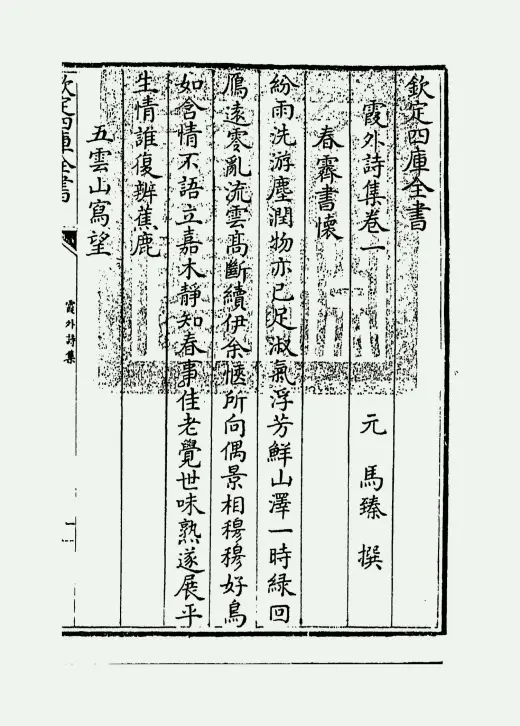 欽定四庫全書
霞外詩集卷一
元 馬臻 撰
春霽書懷
紛雨洗游塵潤物亦已足淑氣浮芳鮮山澤一時緑回
鴈遠零亂流雲髙斷續伊余愜所向偶景相穆穆好鳥
如含情不語立嘉木靜知春事佳老覺世味熟遂展平
生情誰復辨蕉鹿
五雲山寫望
欽定四庫全書
霞外詩集
一